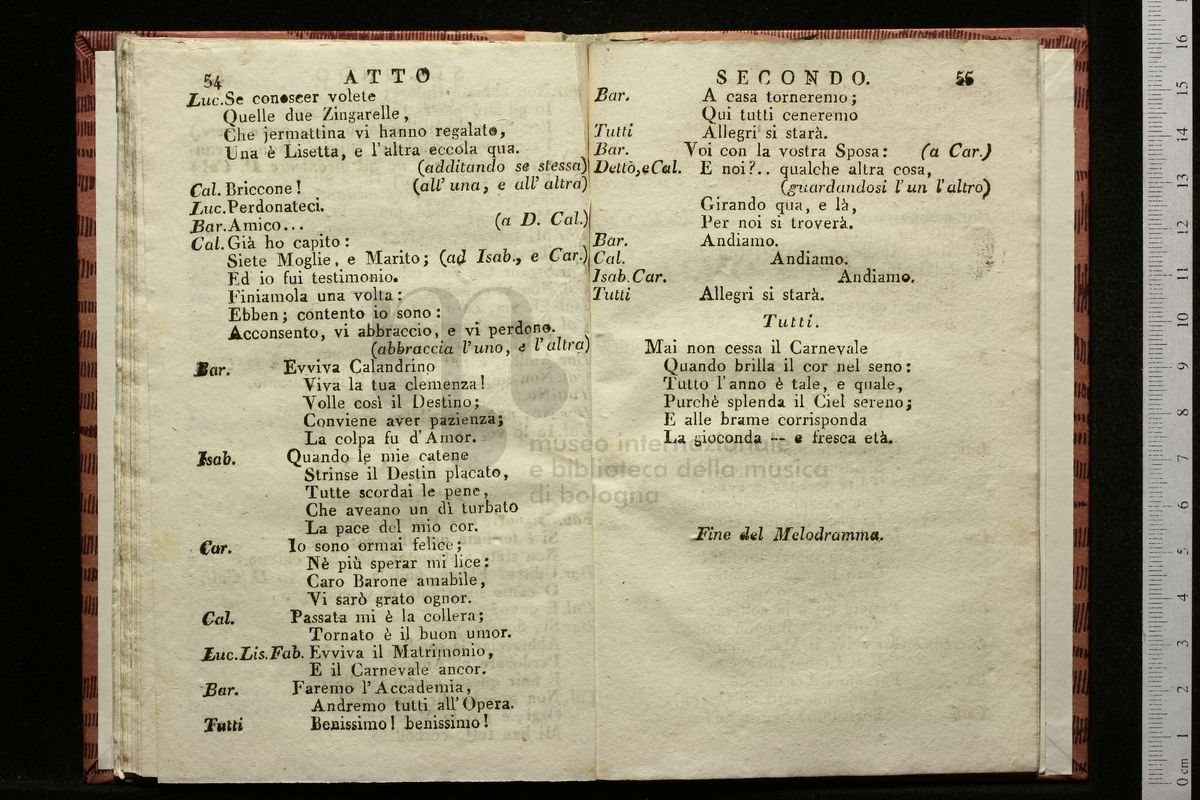 54 ATTO
Luc. Se conoscer volete
Quelle due Zingarelle,
Che jermattina vi hanno regalato,
Una è Lisetta, e l'altra eccola qua.
(additando se stessa)
Cal. Briccone! (all' una, e all' altra)
Luc. Perdonateci.
Bar. Amico... (a D. Cal.)
Cal. Già ho capito:
Siete Moglie, e Marito; (ad Isab., e Car.)
Ed io fui testimonio.
Finiamola una volta:
Ebben; contento io sono:
Acconsento, vi abbraccio, e vi perdono.
(abbraccia l'uno, e l'altra)
Bar. Evviva Calandrino
Viva la tua clemenza!
Volle così il Destino;
Conviene aver pazienza;
La colpa fu d'Amor.
Isab. Quando le mie catene
Strinse il Destin placato,
Tutte scordai le pene,
Che aveano un dì turbato
La pace del mio cor.
Car. Io sono ormai felice;
Nè più sperar mi lice:
Caro Barone amabile,
Vi sarò grato ognor.
Cal. Passata mi è la collera;
Tornato è il buon umor.
Luc. Lis. Fab. Evviva il Matrimonio,
E il Carnevale ancor.
Bar. Faremo l'Accademia,
Andremo tutti all'Opera.
Tutti Benissimo! benissimo!
SECONDO. 55
Bar. A casa torneremo;
Qui tutti ceneremo
Tutti Allegri si starà.
Bar. Voi con la vostra Sposa: (a Car.)
Detto, e Cal. E noi?.. qualche altra cosa,
(guardandosi l'un l'altro)
Girando qua, e là,
Per noi si troverà.
Bar. Andiamo.
Cal. Andiamo.
Isab. Car. Andiamo.
Tutti Allegri si starà.
Tutti.
Mai non cessa il Carnevale
Quando brilla il cor nel seno:
Tutto l'anno è tale, e quale,
Purchè splenda il Ciel sereno;
E alle brame corrisponda
La gioconda -- e fresca età.
Fine del Melodramma.
museo internazionale
e biblioteca della musica
di bologna
0 cm 1 2 3 4 5 6 7 8 9 10 11 12 13 14 15 16